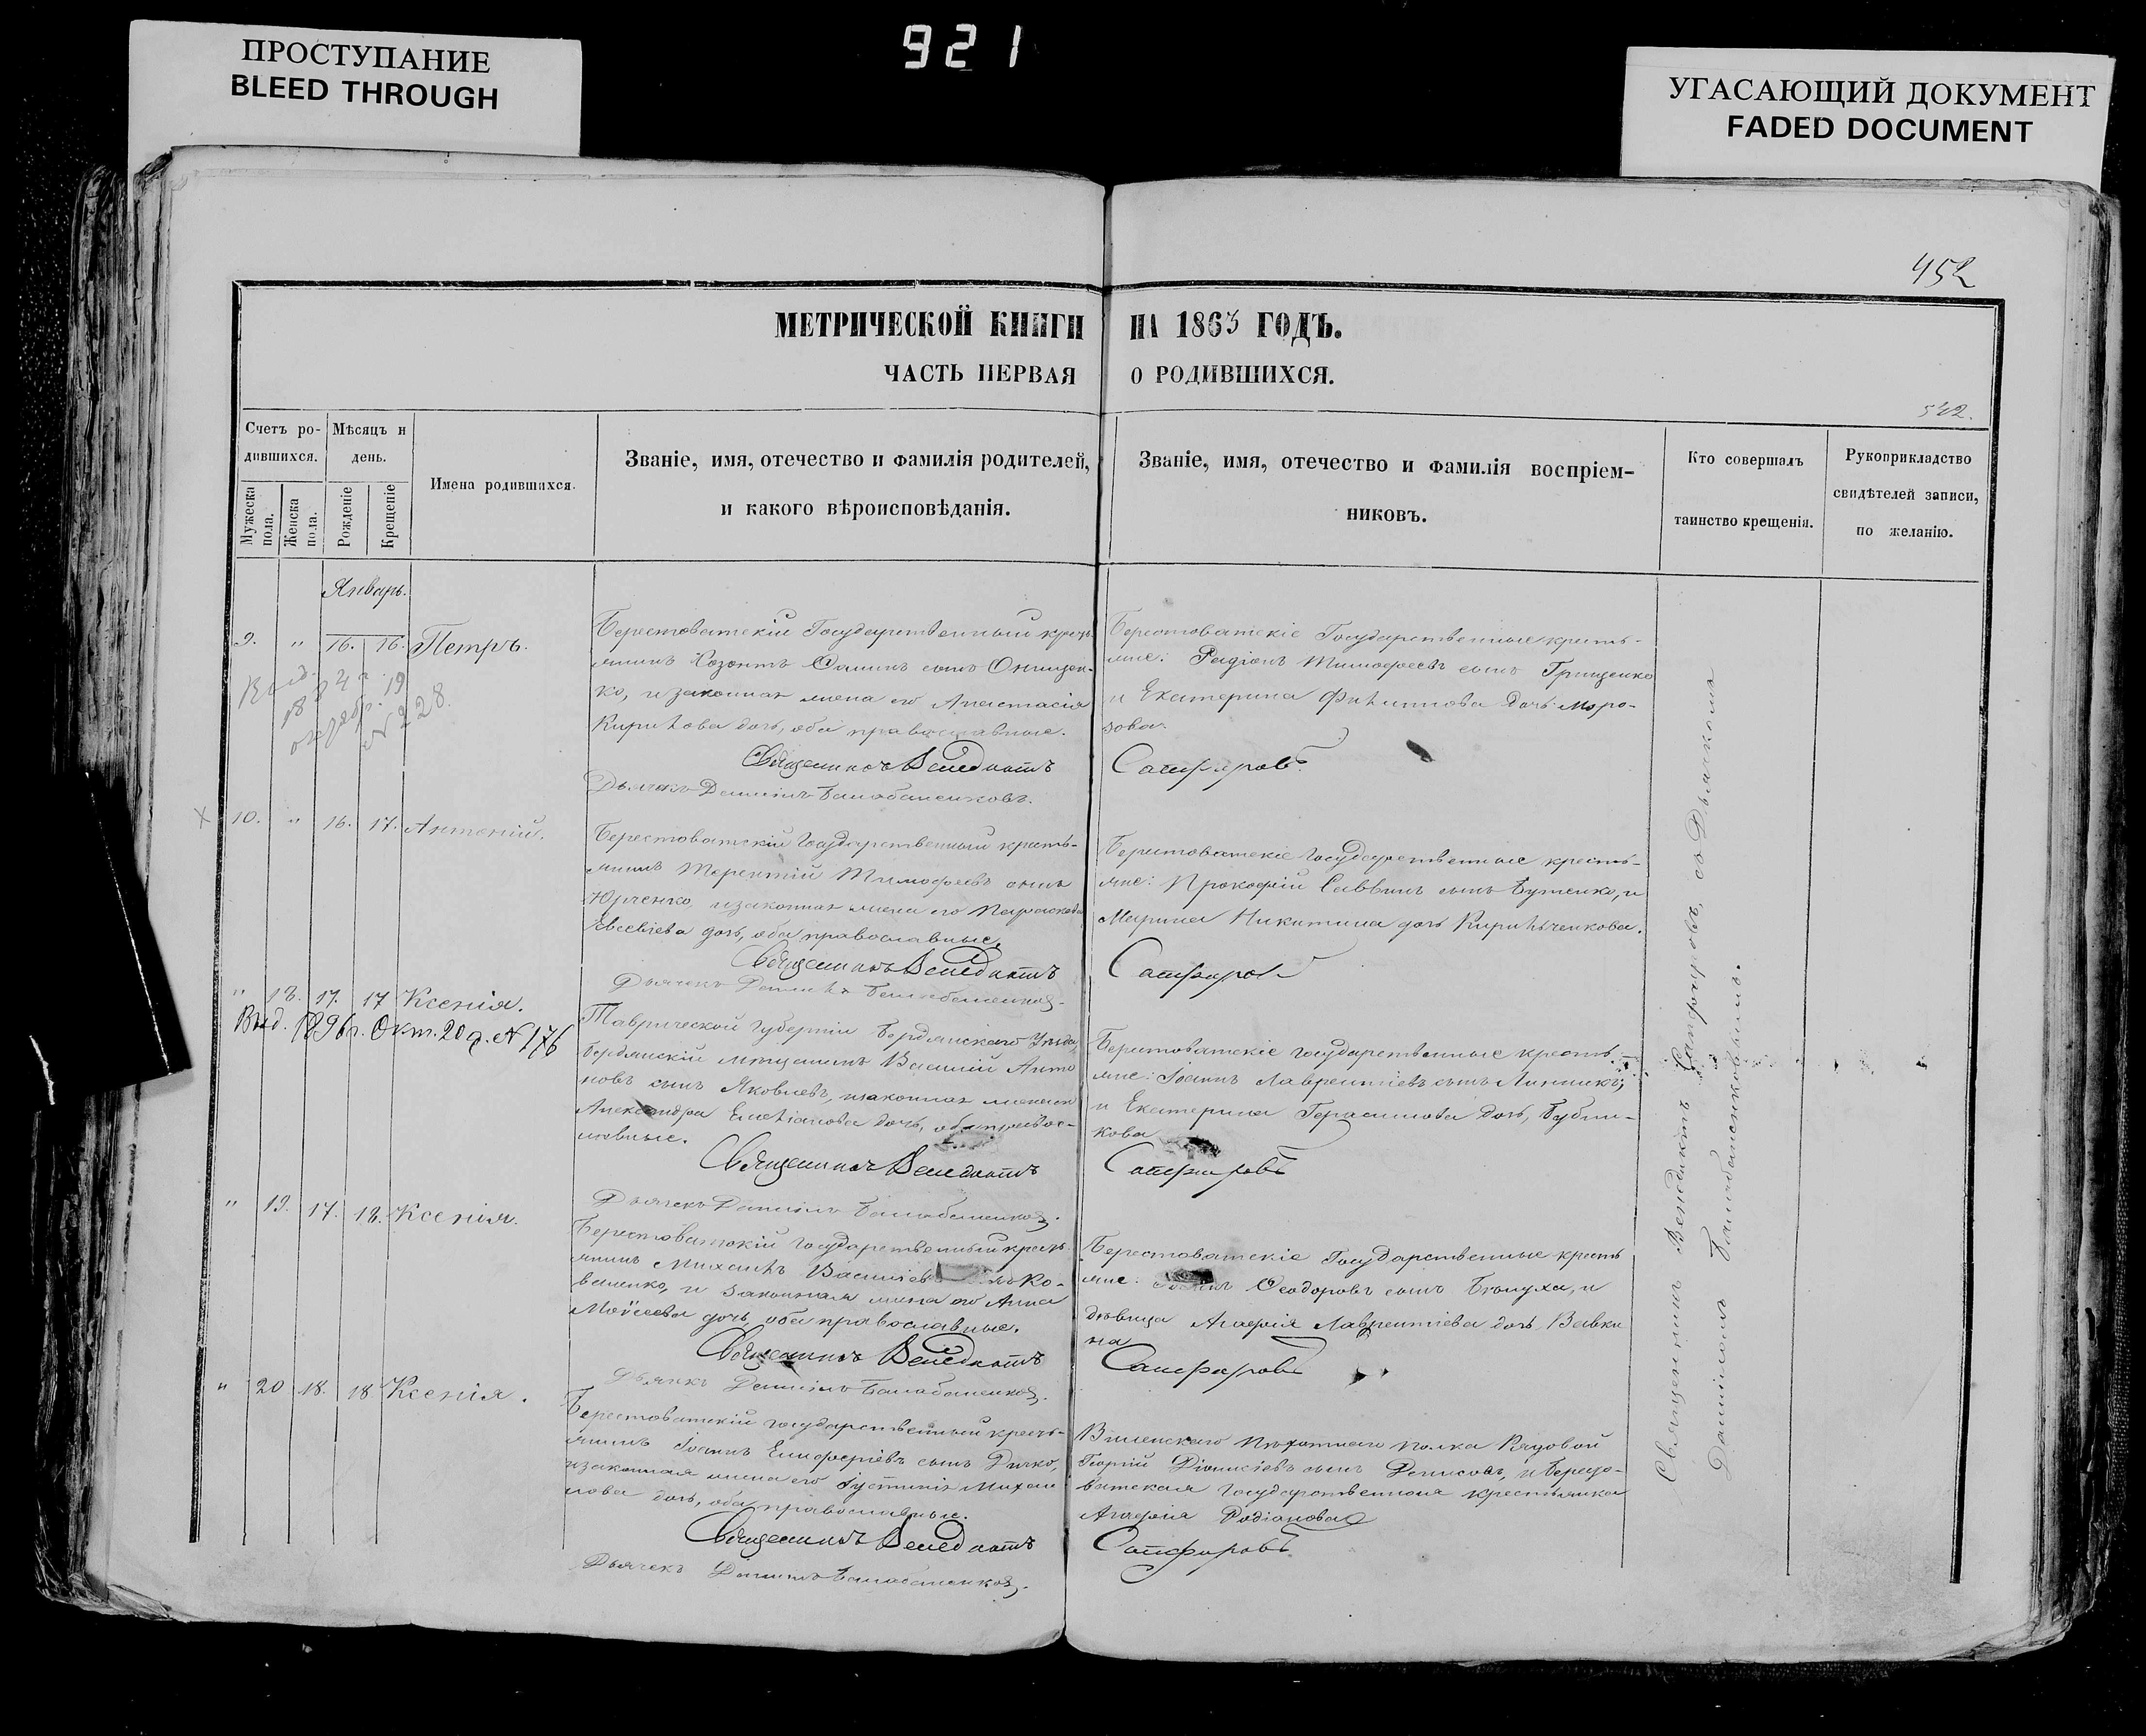 ПРОСТУПАНИЕ
BLEED THROUGH
921
УГАСАЮЩИЙ ДОКУМЕНТ
FADED DOCUMENT
452
МЕТРИЧЕСКОЙ КНИГИ НА 1863 ГОДЪ.
ЧАСТЬ ПЕРВАЯ О РОДИВШИХСЯ.
542.
Счетъ ро-
дившихся.
Мужеска пола.
Женска пола.
Мѣсяцъ и
день.
Рожденіе
Крещеніе
Имена родившихся.
Званіе, имя, отечество и фамилія родителей,
и какого вѣроисповѣданія.
Званіе, имя, отечество и фамилія воспріем-
никовъ.
Кто совершалъ
таинство крещенія.
Рукоприкладство
свидѣтелей записи,
по желанію.
Январь.
9. " 16. 16. Петръ.
Выд.
октябр. 19
№ 228.
Берестоватскій Государственный кресть-
янинъ Созонтъ сынъ Онищен-
ко, и законная жена его Анастасія
Кирилова дочь, оба православные.
Священникъ Венедиктъ
Дьячекъ Даніилъ Балабаненковъ.
Берестоватскіе Государственные кресть-
яне: Родіонъ Тимофеевъ сынъ Грищенко
и Екатерина Филиппова дочь Моро-
зова.
Сапфировъ
10. " 16. 17. Антоній.
Берестоватскій Государственный кресть-
янинъ Терентій Тимофеевъ сынъ
Юрченко, и законная жена его Параскева
Евсевіева дочь, оба православные.
Священникъ Венедиктъ
Дьячекъ Даніилъ Балабаненковъ.
Берестоватскіе Государственные кресть-
яне: Прокофій Саввинъ сынъ Бутенко, и
Марина Никитина дочь Кириличенкова.
Сапфировъ
" 18. 17. 17 Ксенія.
Выд. 1896г. Окт. 20д. № 176
Таврической губерніи Бердянскаго Уѣзда,
Бердянскій мѣщанинъ Василій Анто
новъ сынъ Яковлевъ, и законная жена его
Александра Емеліанова дочь, оба правос-
лавные.
Священникъ Венедиктъ
Дьячекъ Даніилъ Балабаненковъ.
Берестоватскіе государственные кресть-
яне: Іоаннъ Лаврентіевъ сынъ Линникъ;
и Екатерина Герасимова дочь, Бубли-
кова
Сапфировъ
" 19. 17. 18. Ксенія.
Берестоватскій Государственный кресть-
янинъ Михаилъ Василіевъ Ко-
валенко, и законная жена его Анна
Моисеева дочь, оба православные.
Священникъ Венедиктъ
Дьячекъ Даніилъ Балабаненковъ.
Берестоватскіе Государственные кресть
яне: Феодоровъ сынъ Бѣлуха, и
дѣвица Агафія Лаврентіева дочь Вавки
на
Сапфировъ
" 20 18. 18 Ксенія.
Берестоватскій государственный кресть-
янинъ Іоаннъ Елефѳеріевъ сынъ Дичко,
и законная жена его Іустинія Михаи
лова дочь, оба православные.
Священникъ Венедиктъ
Дьячекъ Даніилъ Балабаненковъ.
Виленскаго Пѣхотнаго полка Рядовой
Георгій Діонисіевъ сынъ Денисовъ, и Бересто-
ватская Государственная крестьянка
Агафія Родіонова
Сапфировъ
Священникъ Венедиктъ Сапфировъ, съ Дьячкомъ
Даніиломъ Балабаненковымъ.